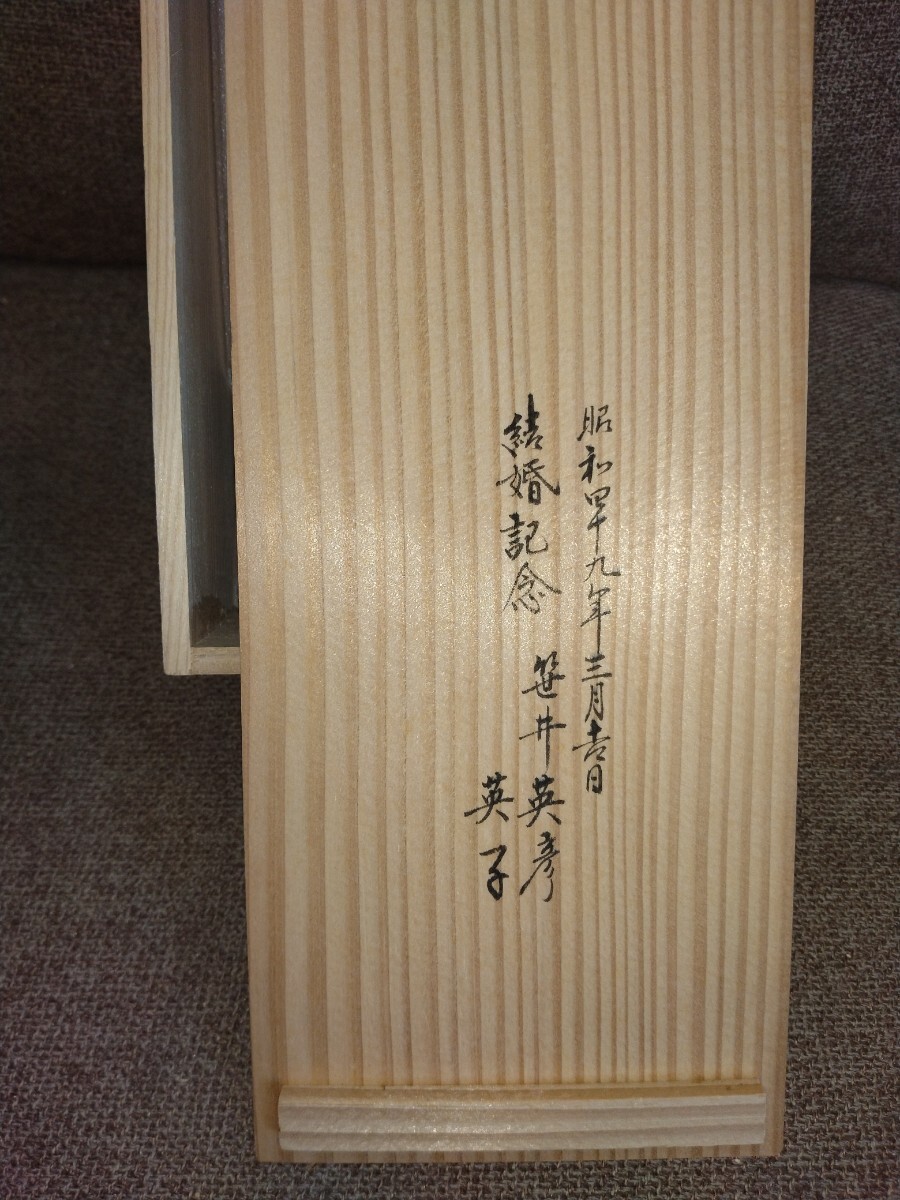 昭和四十九年三月吉日
結婚記念　笹井英彦
英子